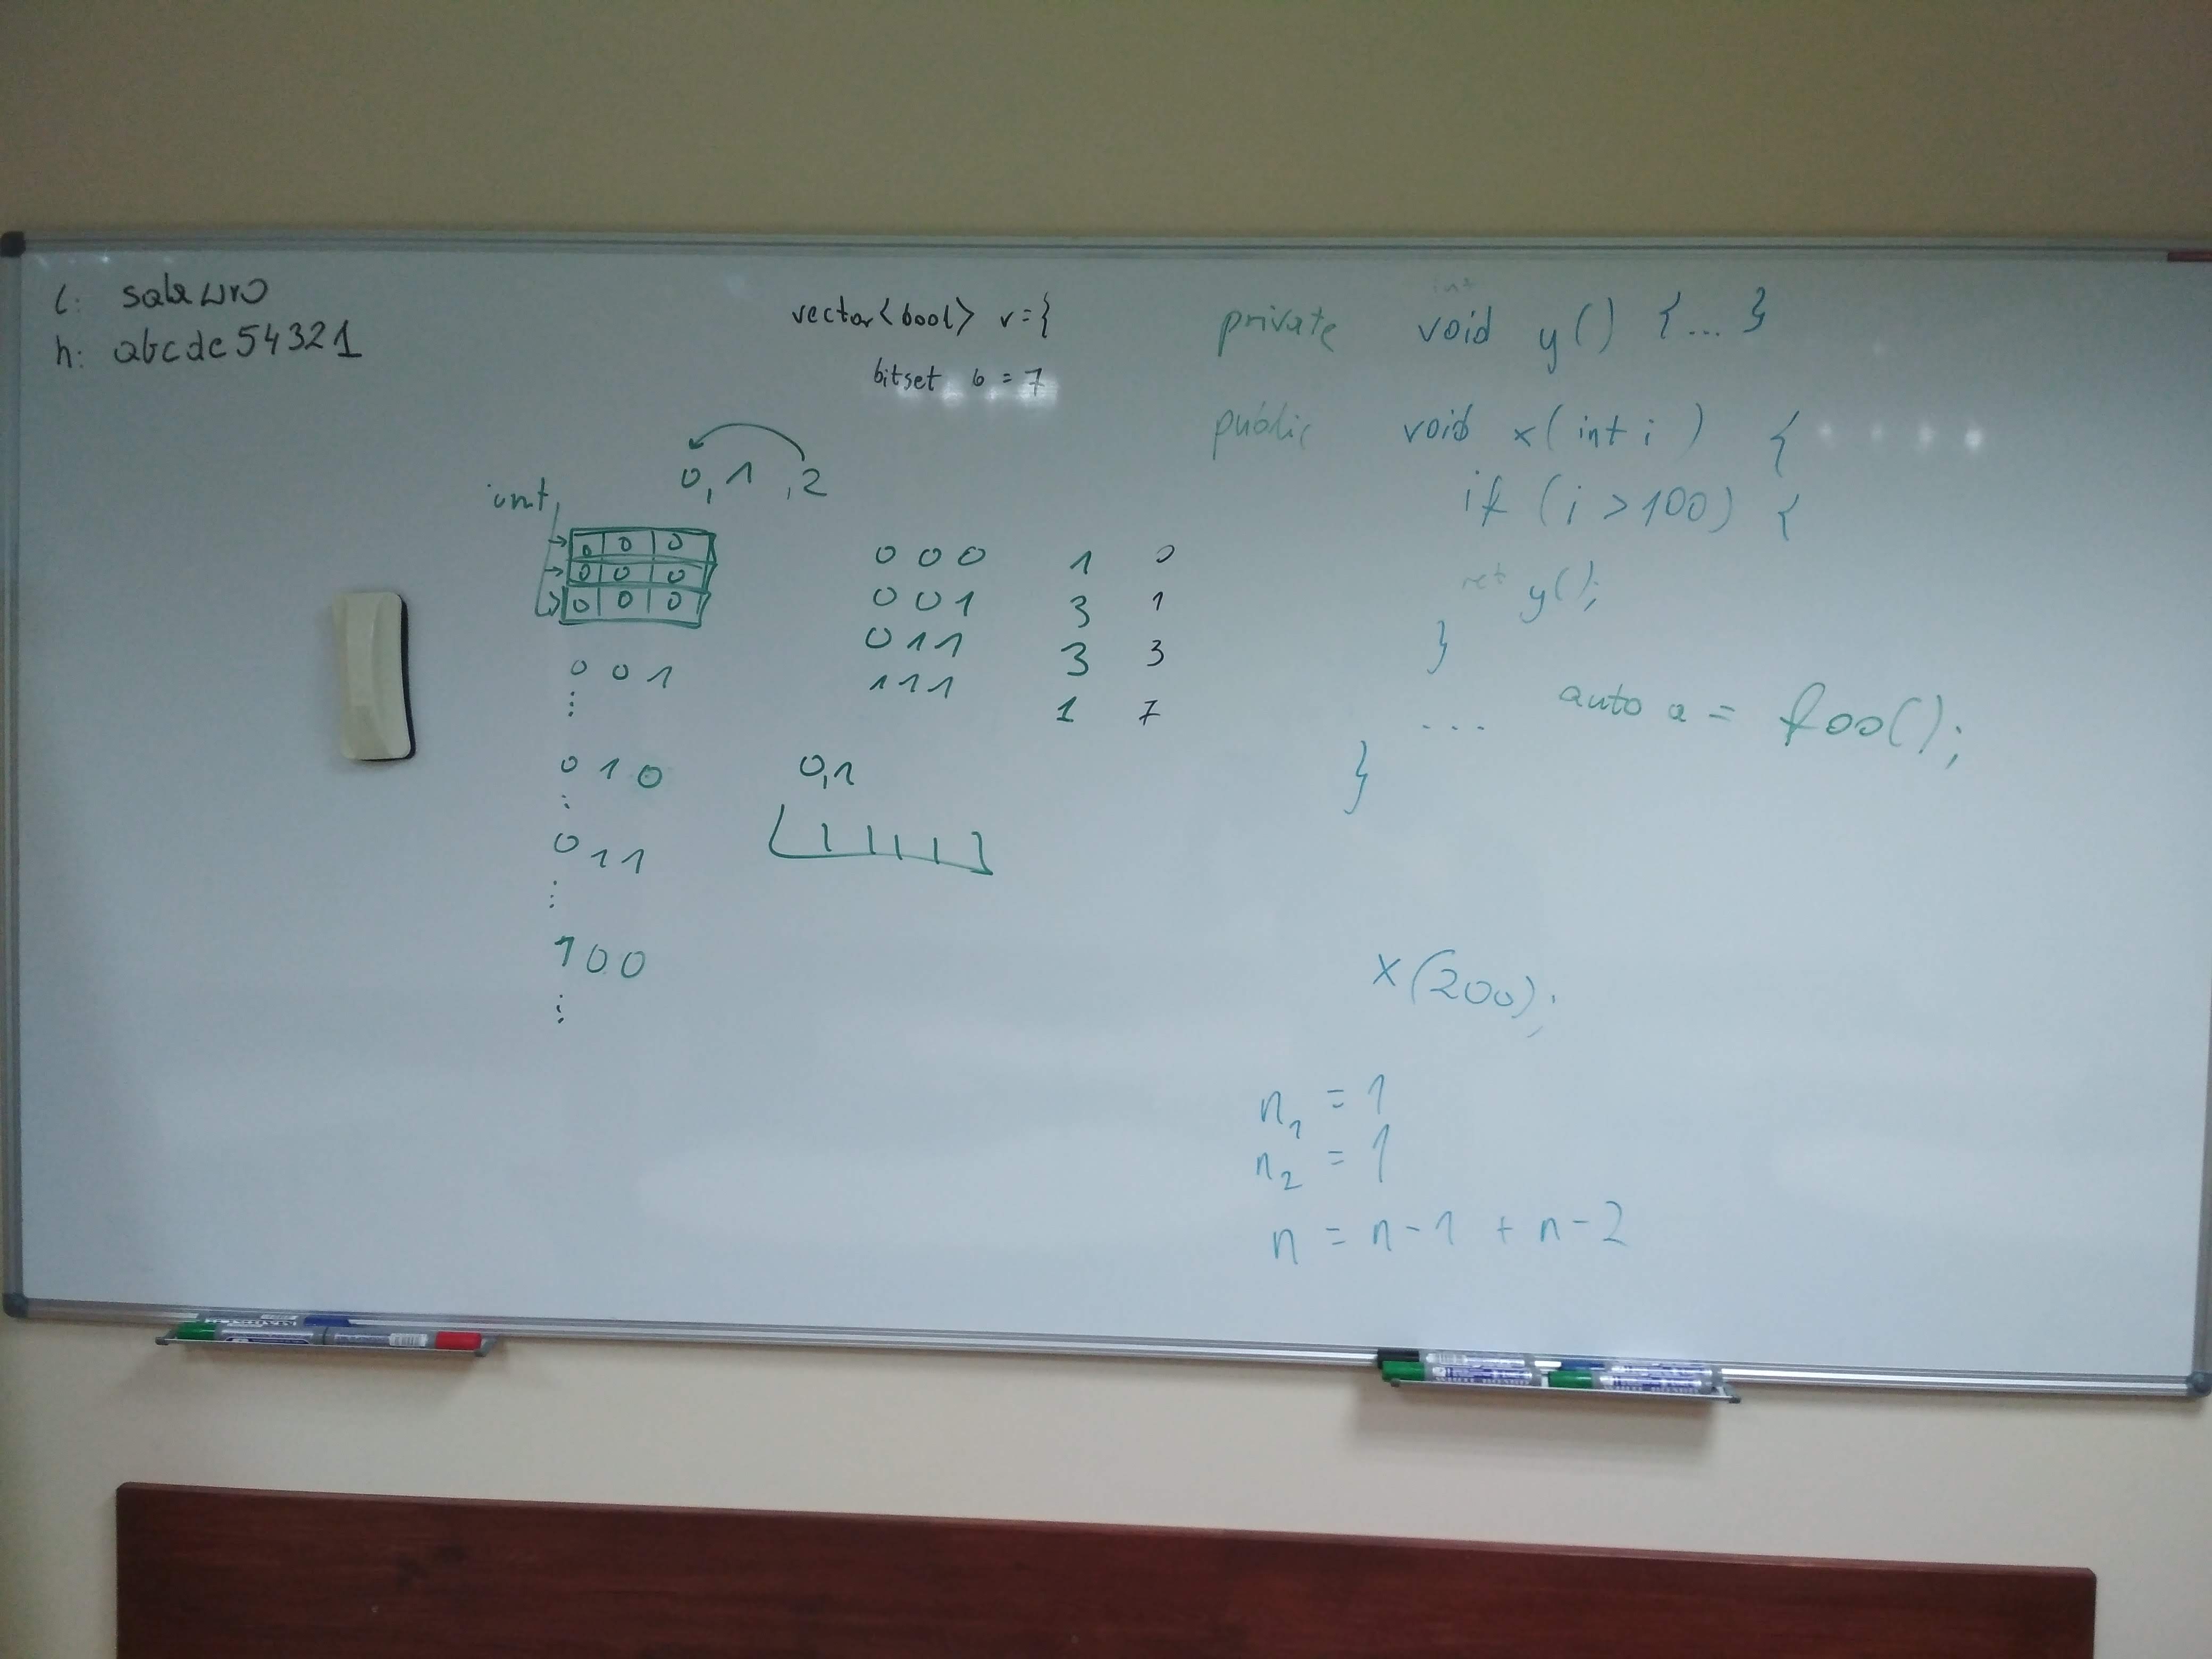 l: sala wro
h: abcde54321
vector<bool> v={
bitset b = 7
0, 1, 2
int
0 0 0
0 0 0
0 0 0
0 0 1
⋮
0 1 0
⋮
0 1 1
⋮
1 0 0
⋮
0 0 0 1 0
0 0 1 3 1
0 1 1 3 3
1 1 1 1 7
0,1
int
private void y() {...}
public void x(int i) {
if (i > 100) {
ret y();
}
... auto a = foo();
}
x(200);
n₁ = 1
n₂ = 1
n = n-1 + n-2